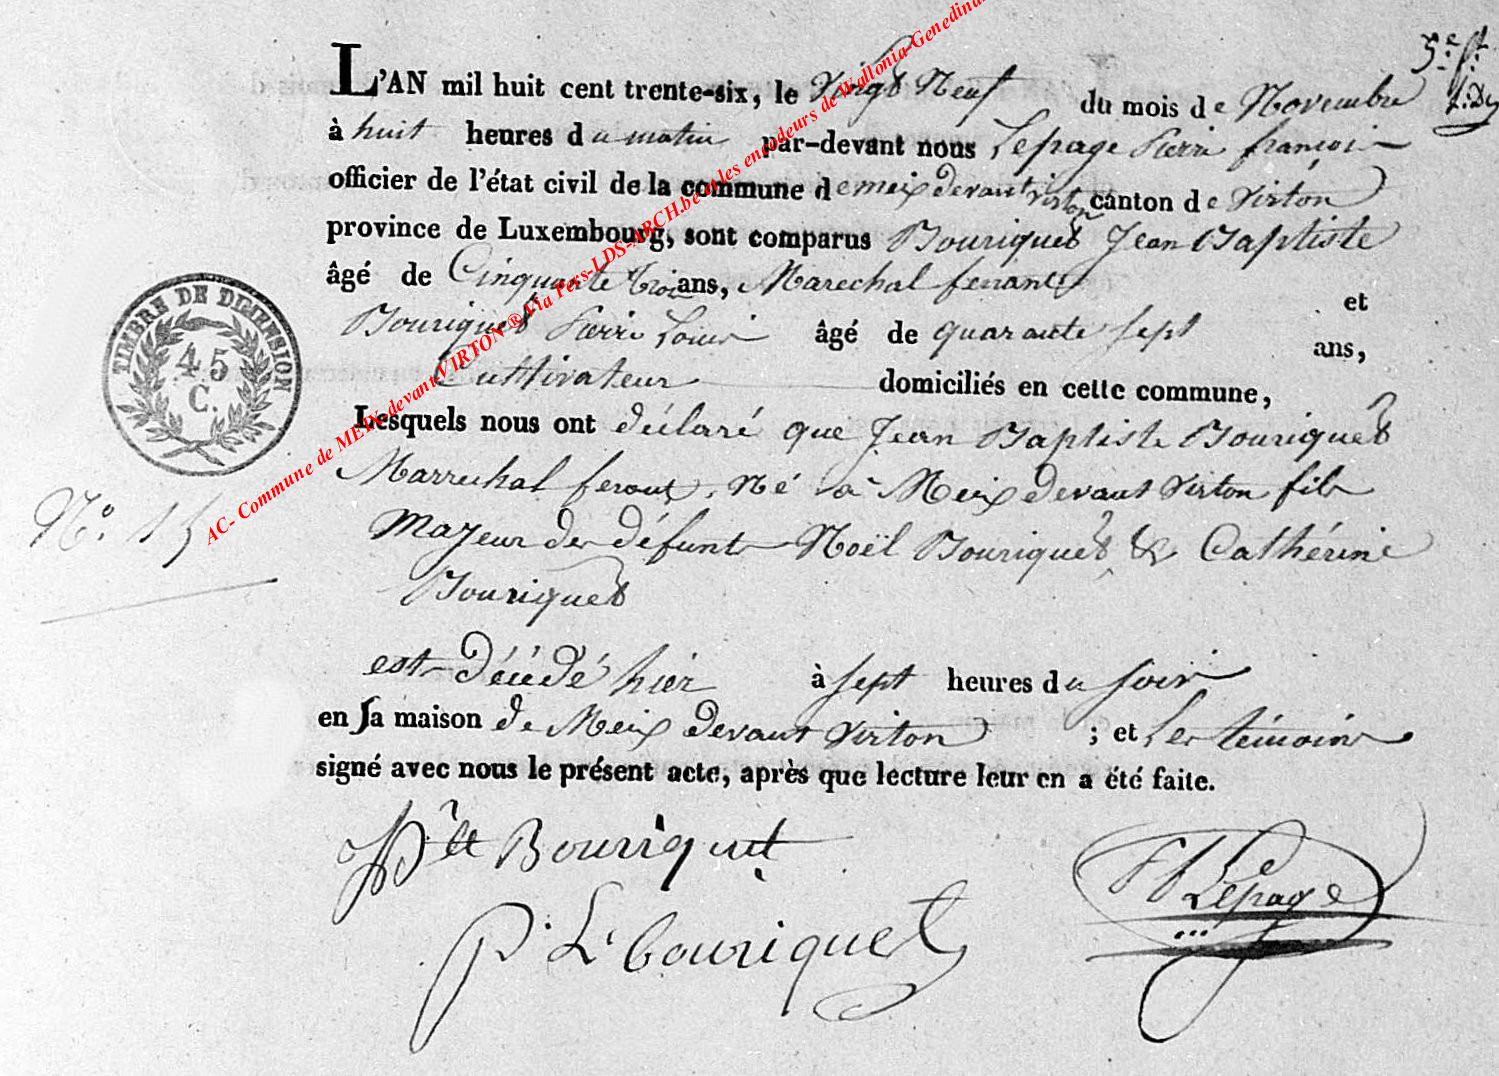 5.e f.t
L'AN mil huit cent trente-six, le Vingt Neuf du mois de Novembre
à huit heures du matin par-devant nous Lepage Pierre françois
officier de l'état civil de la commune de meix devant virton canton de Virton
province de Luxembourg, sont comparus Bouriquet Jean Baptiste
âgé de Cinquante trois ans, Marechal ferrant et
Bouriquet Pierre Louis âgé de quarante sept ans,
Cultivateur domiciliés en cette commune,
Lesquels nous ont déclaré que Jean Baptiste Bouriquet
Marrechal ferant, Né à Meix devant Virton fils
Majeur des défunts Noël Bouriquet & Cathérine
Bouriquet
est décédé hier à sept heures du soir
en sa maison de Meix devant Virton ; et les témoins
signé avec nous le présent acte, après que lecture leur en a été faite.
TIMBRE DE DIMENSION
45
C.
N.o 15
Bouriquet
P. L. bouriquet
Lepage
AC- Commune de MEIX-devant-VIRTON ® Via Pers-LDS-ARCH.be et les encodeurs de Wallonia-Genedina